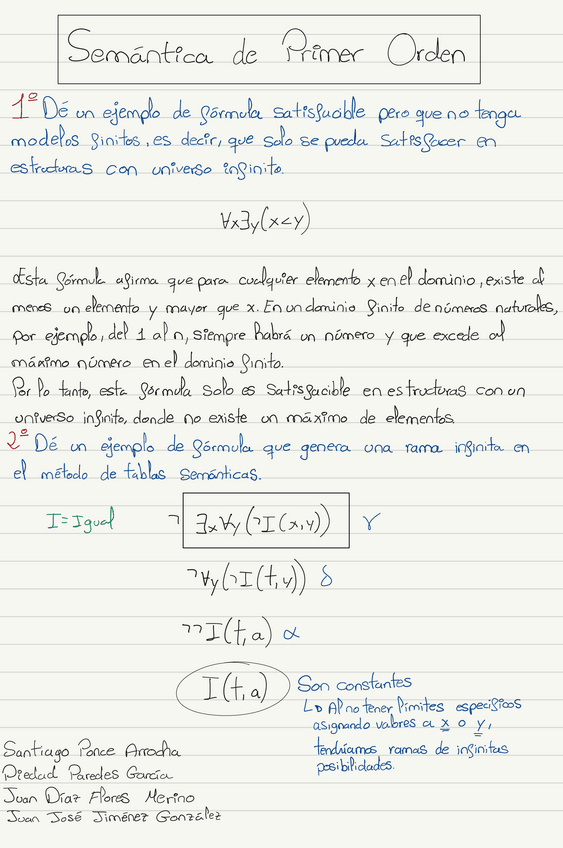 Semántica de Primer Orden
1º Dé un ejemplo de fórmula satisfacible pero que no tenga
modelos finitos, es decir, que solo se pueda satisfacer en
estructuras con universo infinito.
∀x∃y(x<y)
Esta fórmula afirma que para cualquier elemento x en el dominio, existe al
menos un elemento y mayor que x. En un dominio finito de números naturales,
por ejemplo, del 1 al n, siempre habrá un número y que excede al
máximo número en el dominio finito.
Por lo tanto, esta fórmula solo es satisfacible en estructuras con un
universo infinito, donde no existe un máximo de elementos.
2º Dé un ejemplo de fórmula que genera una rama infinita en
el método de tablas semánticas.
I=Igual ¬ ∃x∀y(¬I(x,y)) γ
¬∀y(¬I(t,y)) δ
¬¬I(t,a) α
I(t,a) Son constantes
↳ Al no tener límites específicos
asignando valores a x o y,
tendríamos ramas de infinitas
posibilidades.
Santiago Ponce Arrocha
Piedad Paredes García
Juan Díaz Flores Merino
Juan José Jiménez González